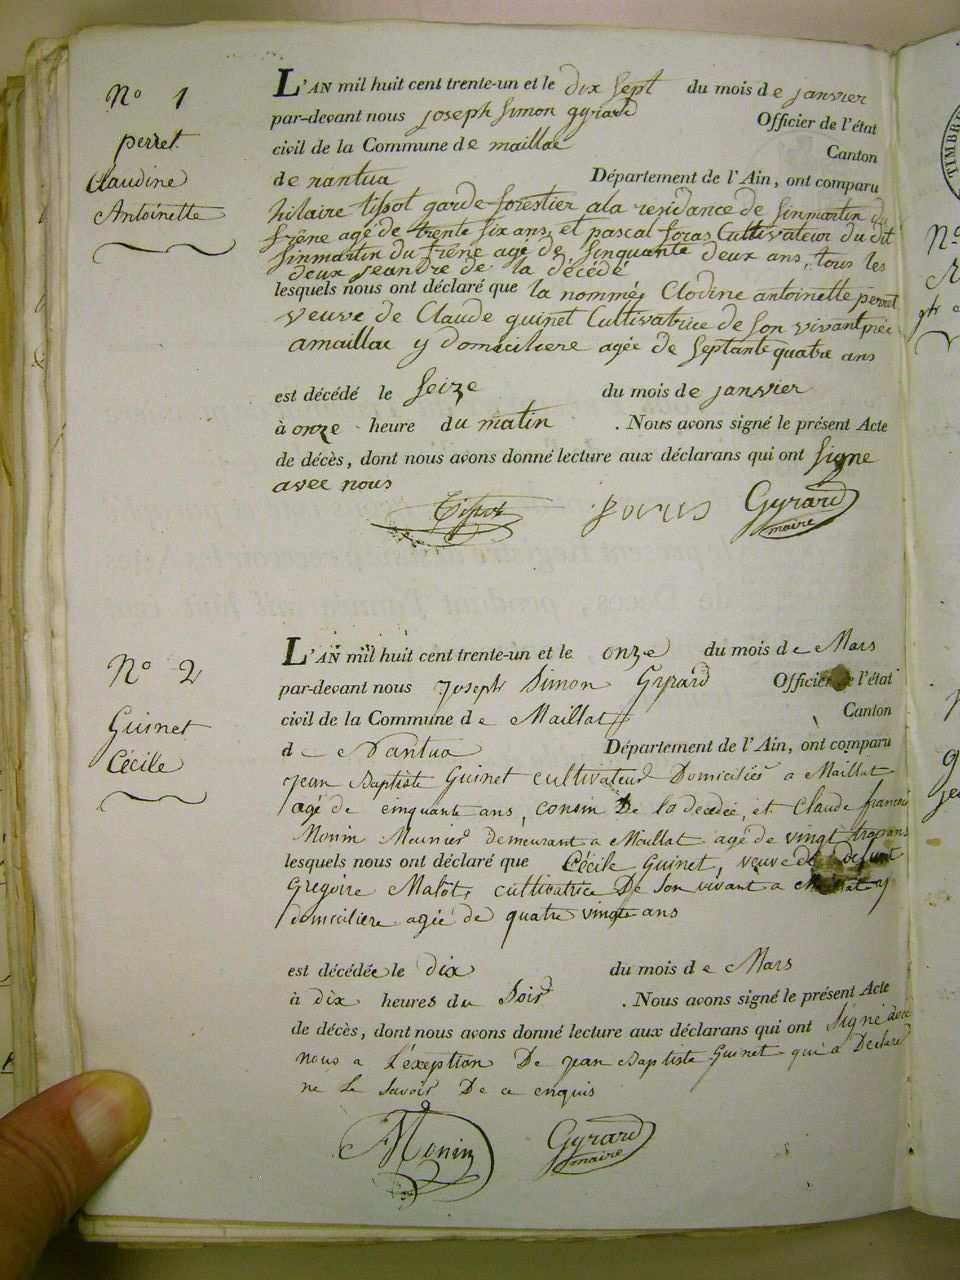 N° 1
perret
Claudine
Antoinette
L'AN mil huit cent trente-un et le dix sept du mois de janvier
par-devant nous joseph simon gyrard Officier de l'état
civil de la Commune de maillac Canton
de nantua Département de l'Ain, ont comparu
hilaire tissot garde forestier ala residance de sinmartin du
frêne agé de trente six ans et pascal soras Cultivateur du dit
sinmartin du frêne agé de sinquante deux ans, tous les
deux jeandre de la décédé
lesquels nous ont déclaré que la nommée Clodine antoinette perret
veuve de Claude guinet Cultivatrice de son vivant née
amaillac y domiciliere agée de septante quatre ans
est décédé le seize du mois de janvier
à onze heure du matin . Nous avons signé le présent Acte
de décès, dont nous avons donné lecture aux déclarans qui ont signe
avec nous
Tissot Gyrard
maire
N° 2
Guinet
Cécile
L'AN mil huit cent trente-un et le onze du mois de Mars
par-devant nous Joseph Simon Gyrard Officier de l'état
civil de la Commune de Maillat Canton
de Nantua Département de l'Ain, ont comparu
Jean Baptiste Guinet cultivateur Domiciliés a Maillat
agé de cinquante ans, cousin De la decedée, et Claude francois
Monin Meunier demeurant a Maillat agé de vingt trois ans
lesquels nous ont déclaré que Cécile Guinet, veuve de defunt
Gregoire Malot, cultivatrice De son vivant a Maillat y
domiciliere agée de quatre vingte ans
est décédée le dix du mois de Mars
à dix heures du Soir . Nous avons signé le présent Acte
de décès, dont nous avons donné lecture aux déclarans qui ont signé avec
nous a l'exeption De jean Baptiste Guinet qui a Declaré
ne Le Savoir De ce enquis
Monin Gyrard
maire
TIMBRE